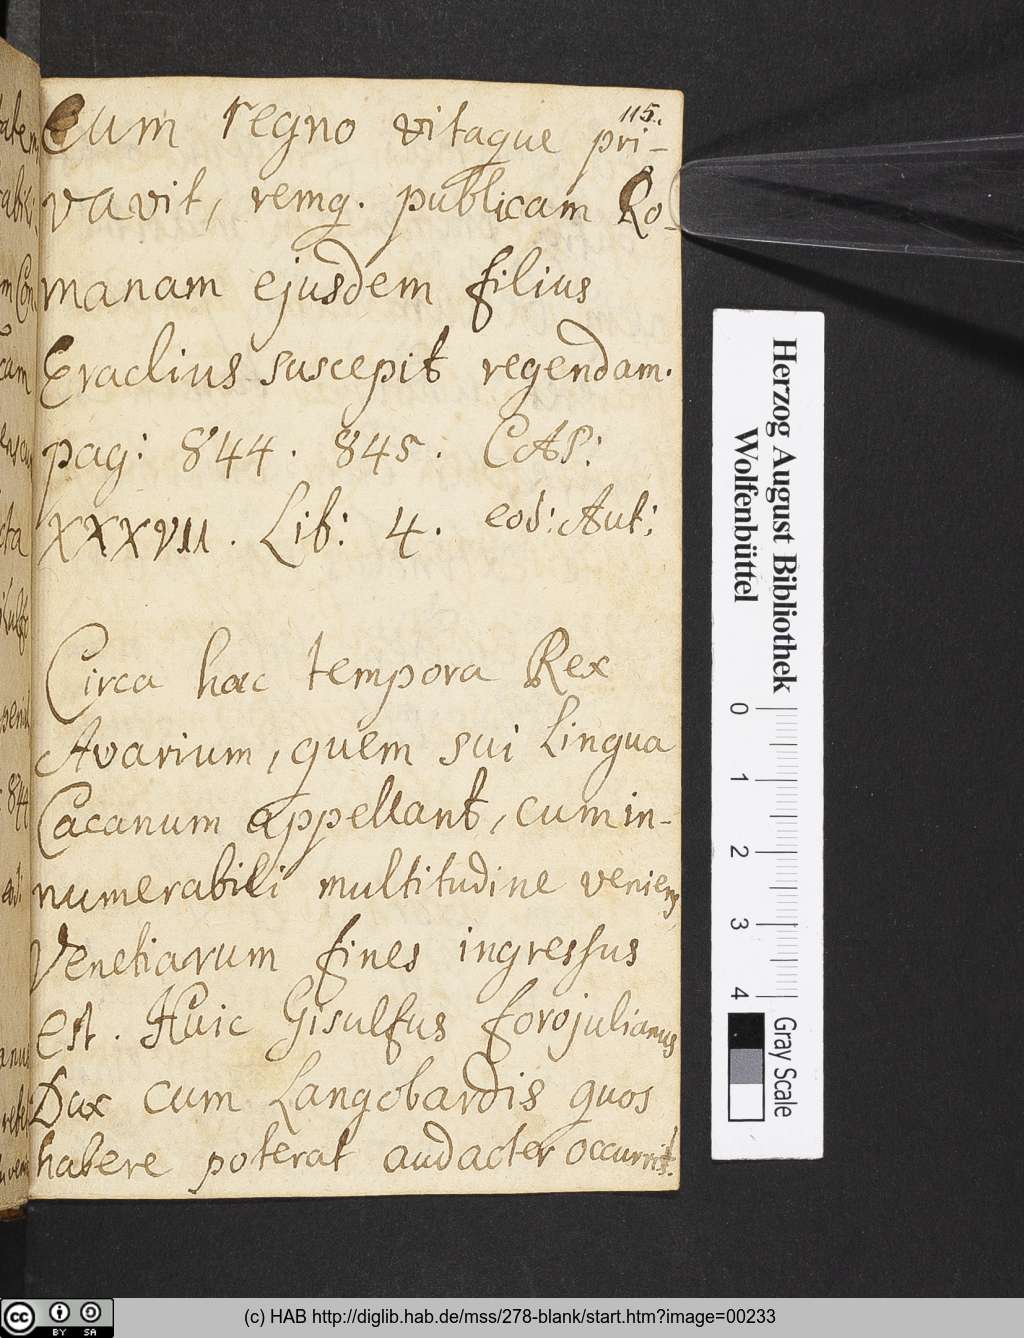 115.
Eum regno vitaque pri-
vavit, remq. publicam Ro-
manam ejusdem filius
Eraclius suscepit regendam.
pag: 844. 845. CAP:
XXXVII. Lib: 4. eod: Aut:
Circa hæc tempora Rex
Avarium, quem sui Lingua
Cacanum appellant, cum in-
numerabili multitudine veniens
Venetiarum fines ingressus
est. Huic Gisulfus forojulianus
Dux cum Langobardis quos
habere poterat audacter occurrit.
Herzog August Bibliothek
Wolfenbüttel
0 1 2 3 4
Gray Scale
cc BY SA
(c) HAB http://diglib.hab.de/mss/278-blank/start.htm?image=00233